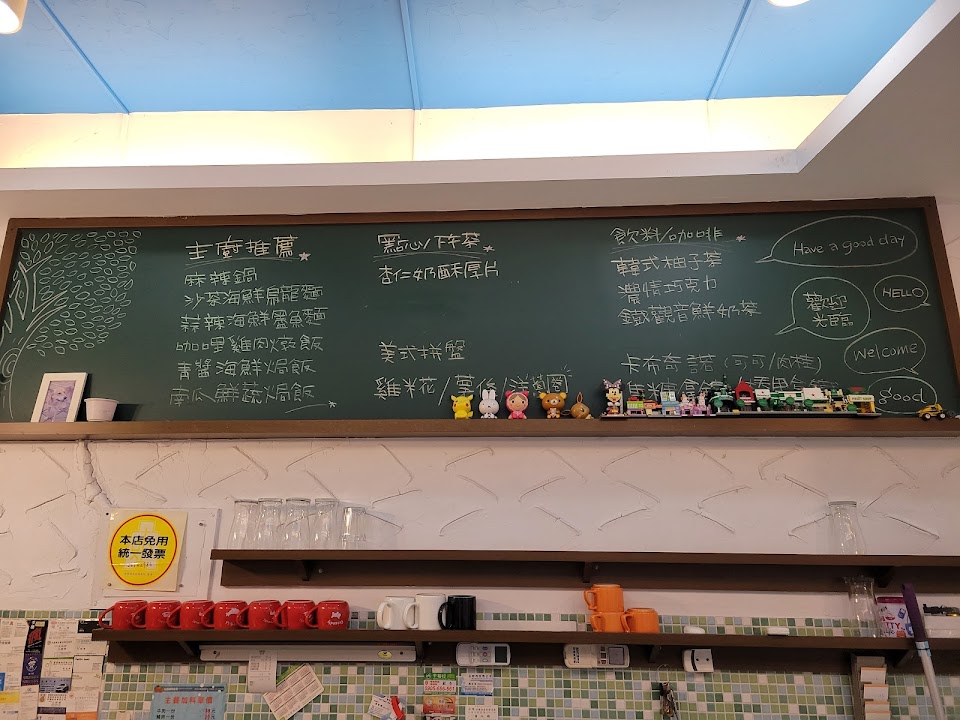 主廚推薦
麻辣鍋
沙茶海鮮烏龍麵
蒜辣海鮮墨魚麵
咖哩雞肉燉飯
青醬海鮮焗飯
南瓜鮮蔬焗飯
點心/下午茶
杏仁奶酥厚片
美式拼盤
雞米花/薯條/洋蔥圈
飲料/咖啡
韓式柚子茶
濃情巧克力
鐵觀音鮮奶茶
卡布奇諾(可可/肉桂)
Have a good day
HELLO
歡迎
光臨
Welcome
good
本店免用
統一發票